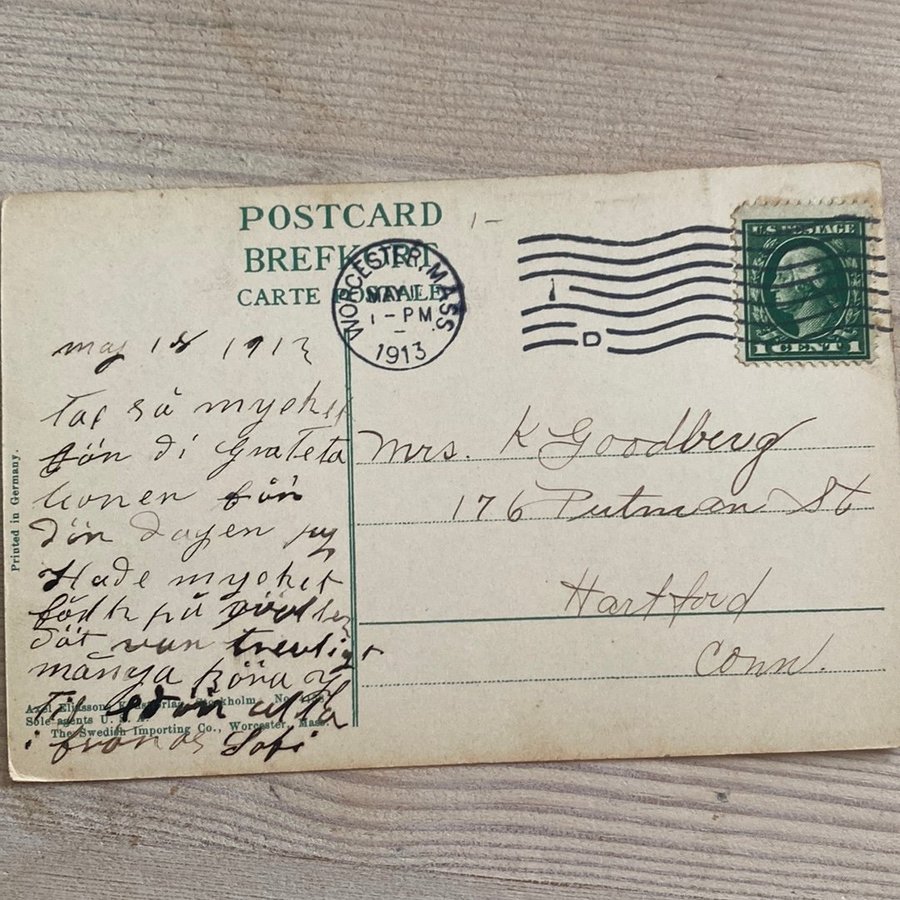 POSTCARD
BREFKORT
CARTE POSTALE
1-
WORCESTER, MASS.
MAY
1 - PM
1913
U.S. POSTAGE
1 CENT 1
D
maj 18 1913
Tak så mycket
fön di Grateta
tionen fön
dön dagen jag
Hade mycket
på
dät van trevligt
många
edön alla
i från os Sofi
Mrs. K Goodberg
176 Putman St
Hartford
Conn.
Printed in Germany.
Axel Eliassons Konstförlag, Stockholm. No.
Sole agents U. S. A.
The Swedish Importing Co., Worcester, Mass.